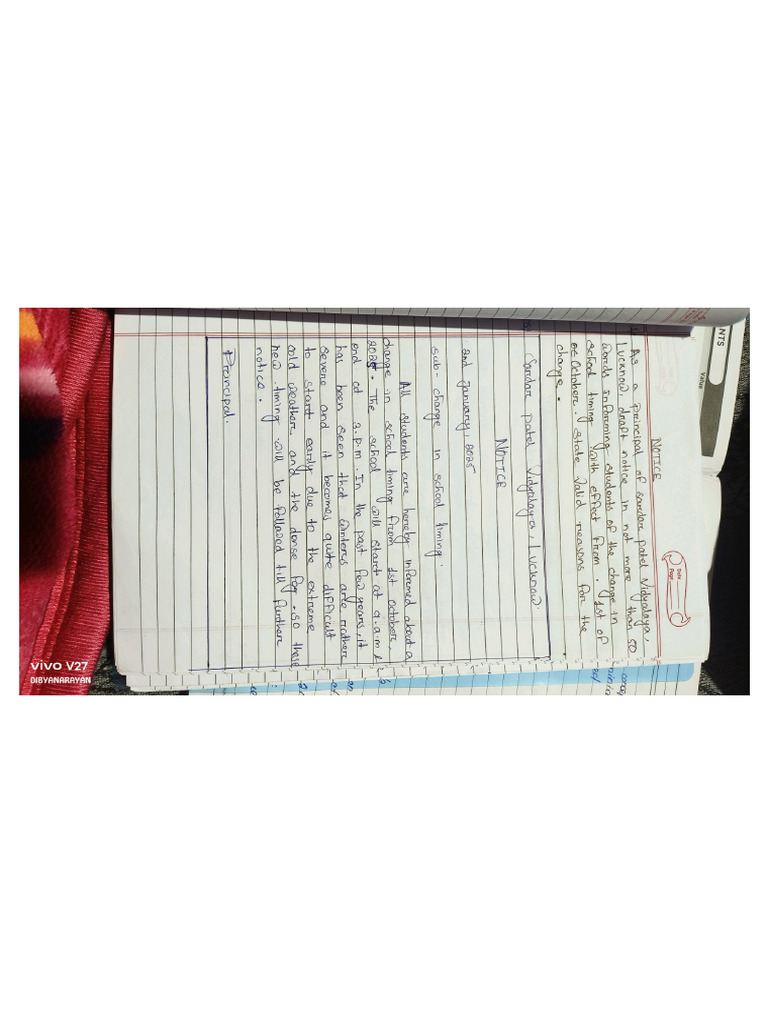 NOTICE
Date
Page
As a principal of sardar patel vidyalaya,
Lucknow, draft notice in not more than 50
words informing students of the change in
school timing with effect from . 1st of
october. state valid reasons for the
change.
Sardar patel vidyalaya, Lucknow.
NOTICE
2nd january, 2025
sub- change in school timing.
All students are hereby informed about a
change in school timing from 1st october,
2025. The school will start at 9.a.m &
end at 2.p.m. In the past few years, it
has been seen that winters are rathere
severe and it becomes quite difficult
to start early due to the extreme
cold weather and the dense fog. so these
new timing will be followed till further
notice.
Principal.
NTS
Value
vivo V27
DIBYANARAYAN